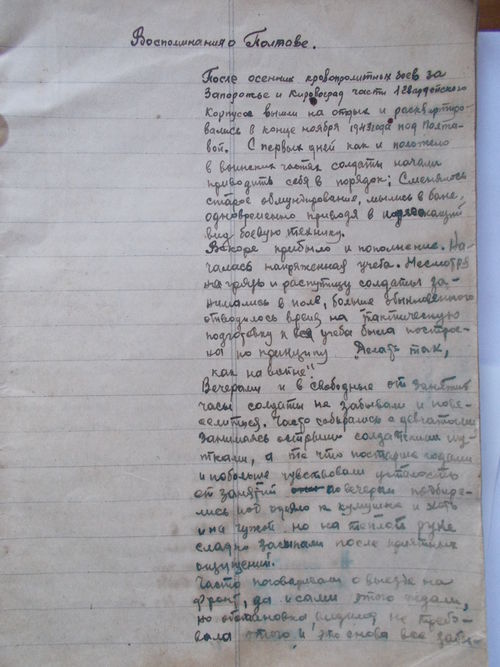 Воспоминания о Полтаве.
После осенних кровопролитных боев за
Запорожье и Кировоград части 1 Гвардейского
Корпуса вышли на отдых и расквартиро-
вались в конце ноября 1943 года под Полта-
вой. С первых дней как и положено
в воинских частях солдаты начали
приводить себя в порядок; Сменялось
старое обмундирование, мылись в бане,
одновременно приводя в надлежащий
вид боевую технику.
Вскоре прибыло и пополнение. На-
чалась напряженная учеба. Несмотря
на грязь и распутицу солдаты за-
нимались в поле, больше обыкновенного
отводилось время на тактическую
подготовку и вся учеба была построе-
на по принципу "Делать так,
как на войне".
Вечерами и в свободные от занятий
часы солдаты не забывали и пове-
селиться. Часто собирались с девчатами
занимаясь острыми солдатскими шу-
тками, а те что постарше годами
и побольше чувствовали усталость
от занятий по вечерам прибира-
лись под одеяло к кумушке и хоть
и на чужой но на теплой руке
сладко засыпали после приятных
ощущений.
Часто поговаривали о выезде на
фронт, да и сами этого ждали,
но обстановка видимо не требо-
вала этого и это снова все забы-